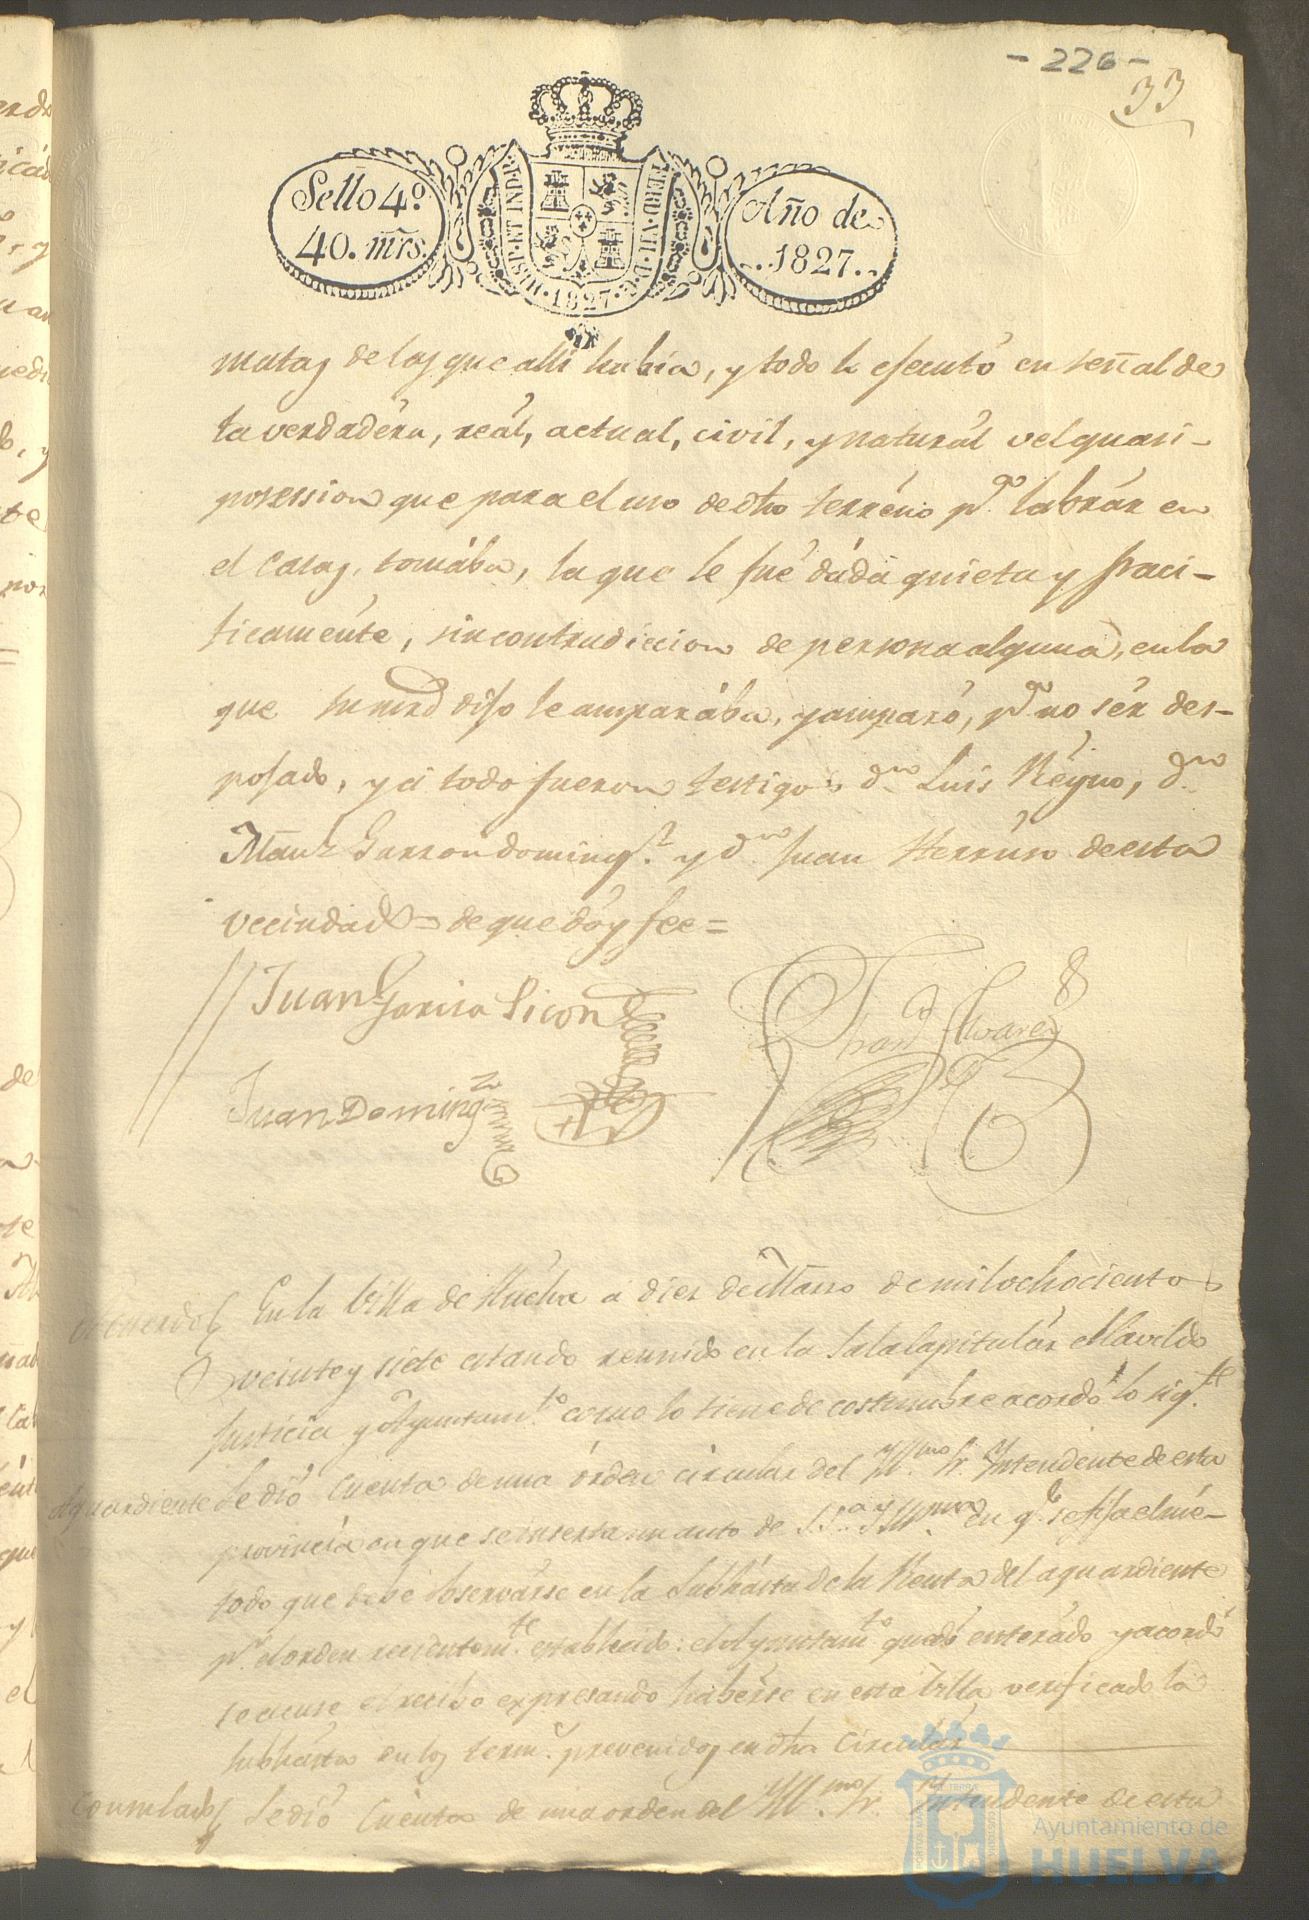 - 226 -
33
Sello 4º.
40. mrs.
HISP. ET IND. R.
FERD. VII. D. G.
1827
Año de
1827.
matas de las que alli habia, y todo lo efecutó en señal de
la verdadera, reál, actual, civil, y naturál vel quasi-
posession que para el uso de dho terréno pª labrár en
el Casas, tomába, la que le fué dáda quieta y paci-
ficaménte, sin contradiccion de persona alguna, en la
que su mrd dijo le amparába, y amparó, pª no sér des-
pojado, y á todo fueron testigos dn Luis Réyno, dn
Manl. Garzon domingz. y dn Juan Herréro de esta
vecindad = de que dóy feé =
Juan Garcia Picon
Alvarez
Juan Domingz
Acuerdo
En la Villa de Huelva á diez de Marzo de mil ochocientos
veinte y siete estando reunido en la Sala Capitulár el Cavildo
Justicia y Ayuntamto. como lo tiene de costumbre acordó lo sigte.
Aguardiente
Se dió Cuenta de una órden circular del Yllmo. Sr. Yntendente de esta
provincia en que se inserta un auto de S.Sa. Yllma. en qe. se fija el mé-
todo que debe observárse en la Subhásta de la Renta del aguardiente
pr. el orden recientemte. establecido: el Ayuntamto. quedó enterádo y acordó
se acuse el recibo expresando habérse en esta Villa verificado la
subhásta en los term. prevenidos en dha Circulár
Consulado
Se dió Cuenta de una orden del Yllmo. Sr. Yntendente de esta
Ayuntamiento de
HUELVA